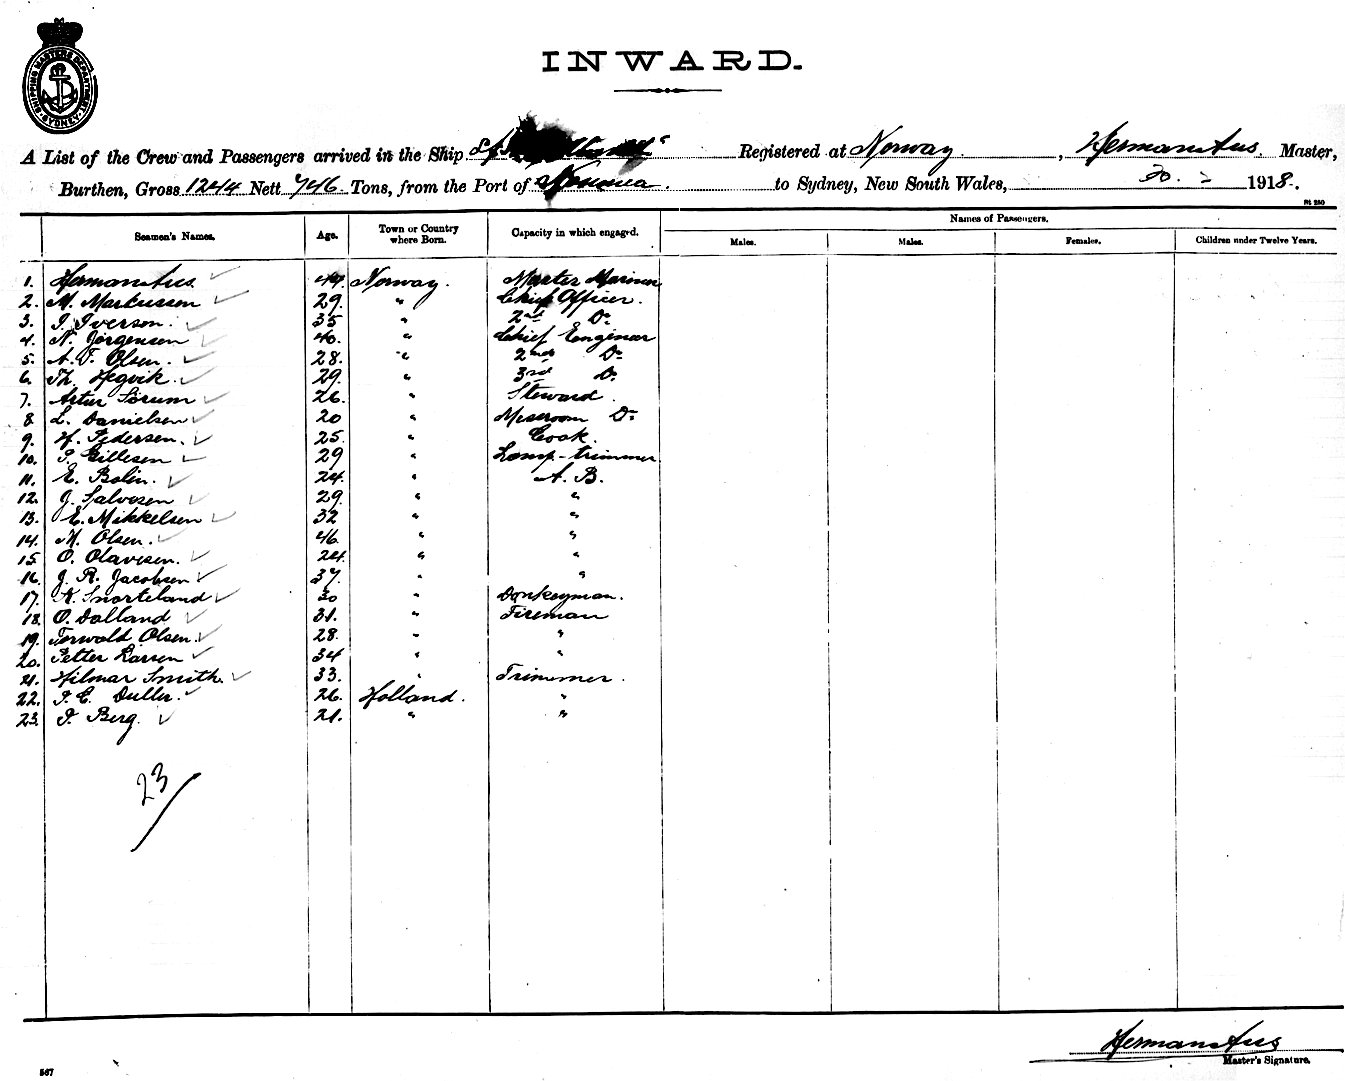 SHIPPING MASTERS DEPARTMENT SYDNEY
INWARD.
A List of the Crew and Passengers arrived in the Ship Registered at Norway, Hermansthus. Master,
Burthen, Gross 1244 Nett 746 Tons, from the Port of Noumea. to Sydney, New South Wales, 30. 1918.
Seamen's Names. Age. Town or Country where Born. Capacity in which engaged. Names of Passengers.
Males. Males. Females. Children under Twelve Years.
1. 44. Norway. Master Mariner
2. M. Markussen 29. " Chief Officer.
3. J. Iverson. 35 " 2nd Do
4. N. Jörgensen 40. " Chief Engineer
5. A. T. Olsen. 28. " 2nd Do
6. Th. Hegvik. 29. " 3rd Do
7. Artur Sörum 26. " Steward.
8. L. Danielsen 20 " Messroom Do
9. H. Pedersen. 25. " Cook.
10. Gillesen 29 " Lamp-trimmer
11. E. Bolin. 24. " A. B.
12. J. Salvesen 29. " "
13. E. Mikkelsen 32 " "
14. M. Olsen. 46. " "
15. O. Olavesen. 24. " "
16. J. R. Jacobsen 37. " "
17. K. Snorteland 30 " Donkeyman.
18. O. Dalland 31. " Fireman
19. Torwald Olsen. 28. " "
20. Petter Larsen 34 " "
21. Hilmar Smith. 33. " Trimmer.
22. P. E. Duller. 26. Holland. "
23. P. Berg. 21. " "
23/
Master's Signature.
567